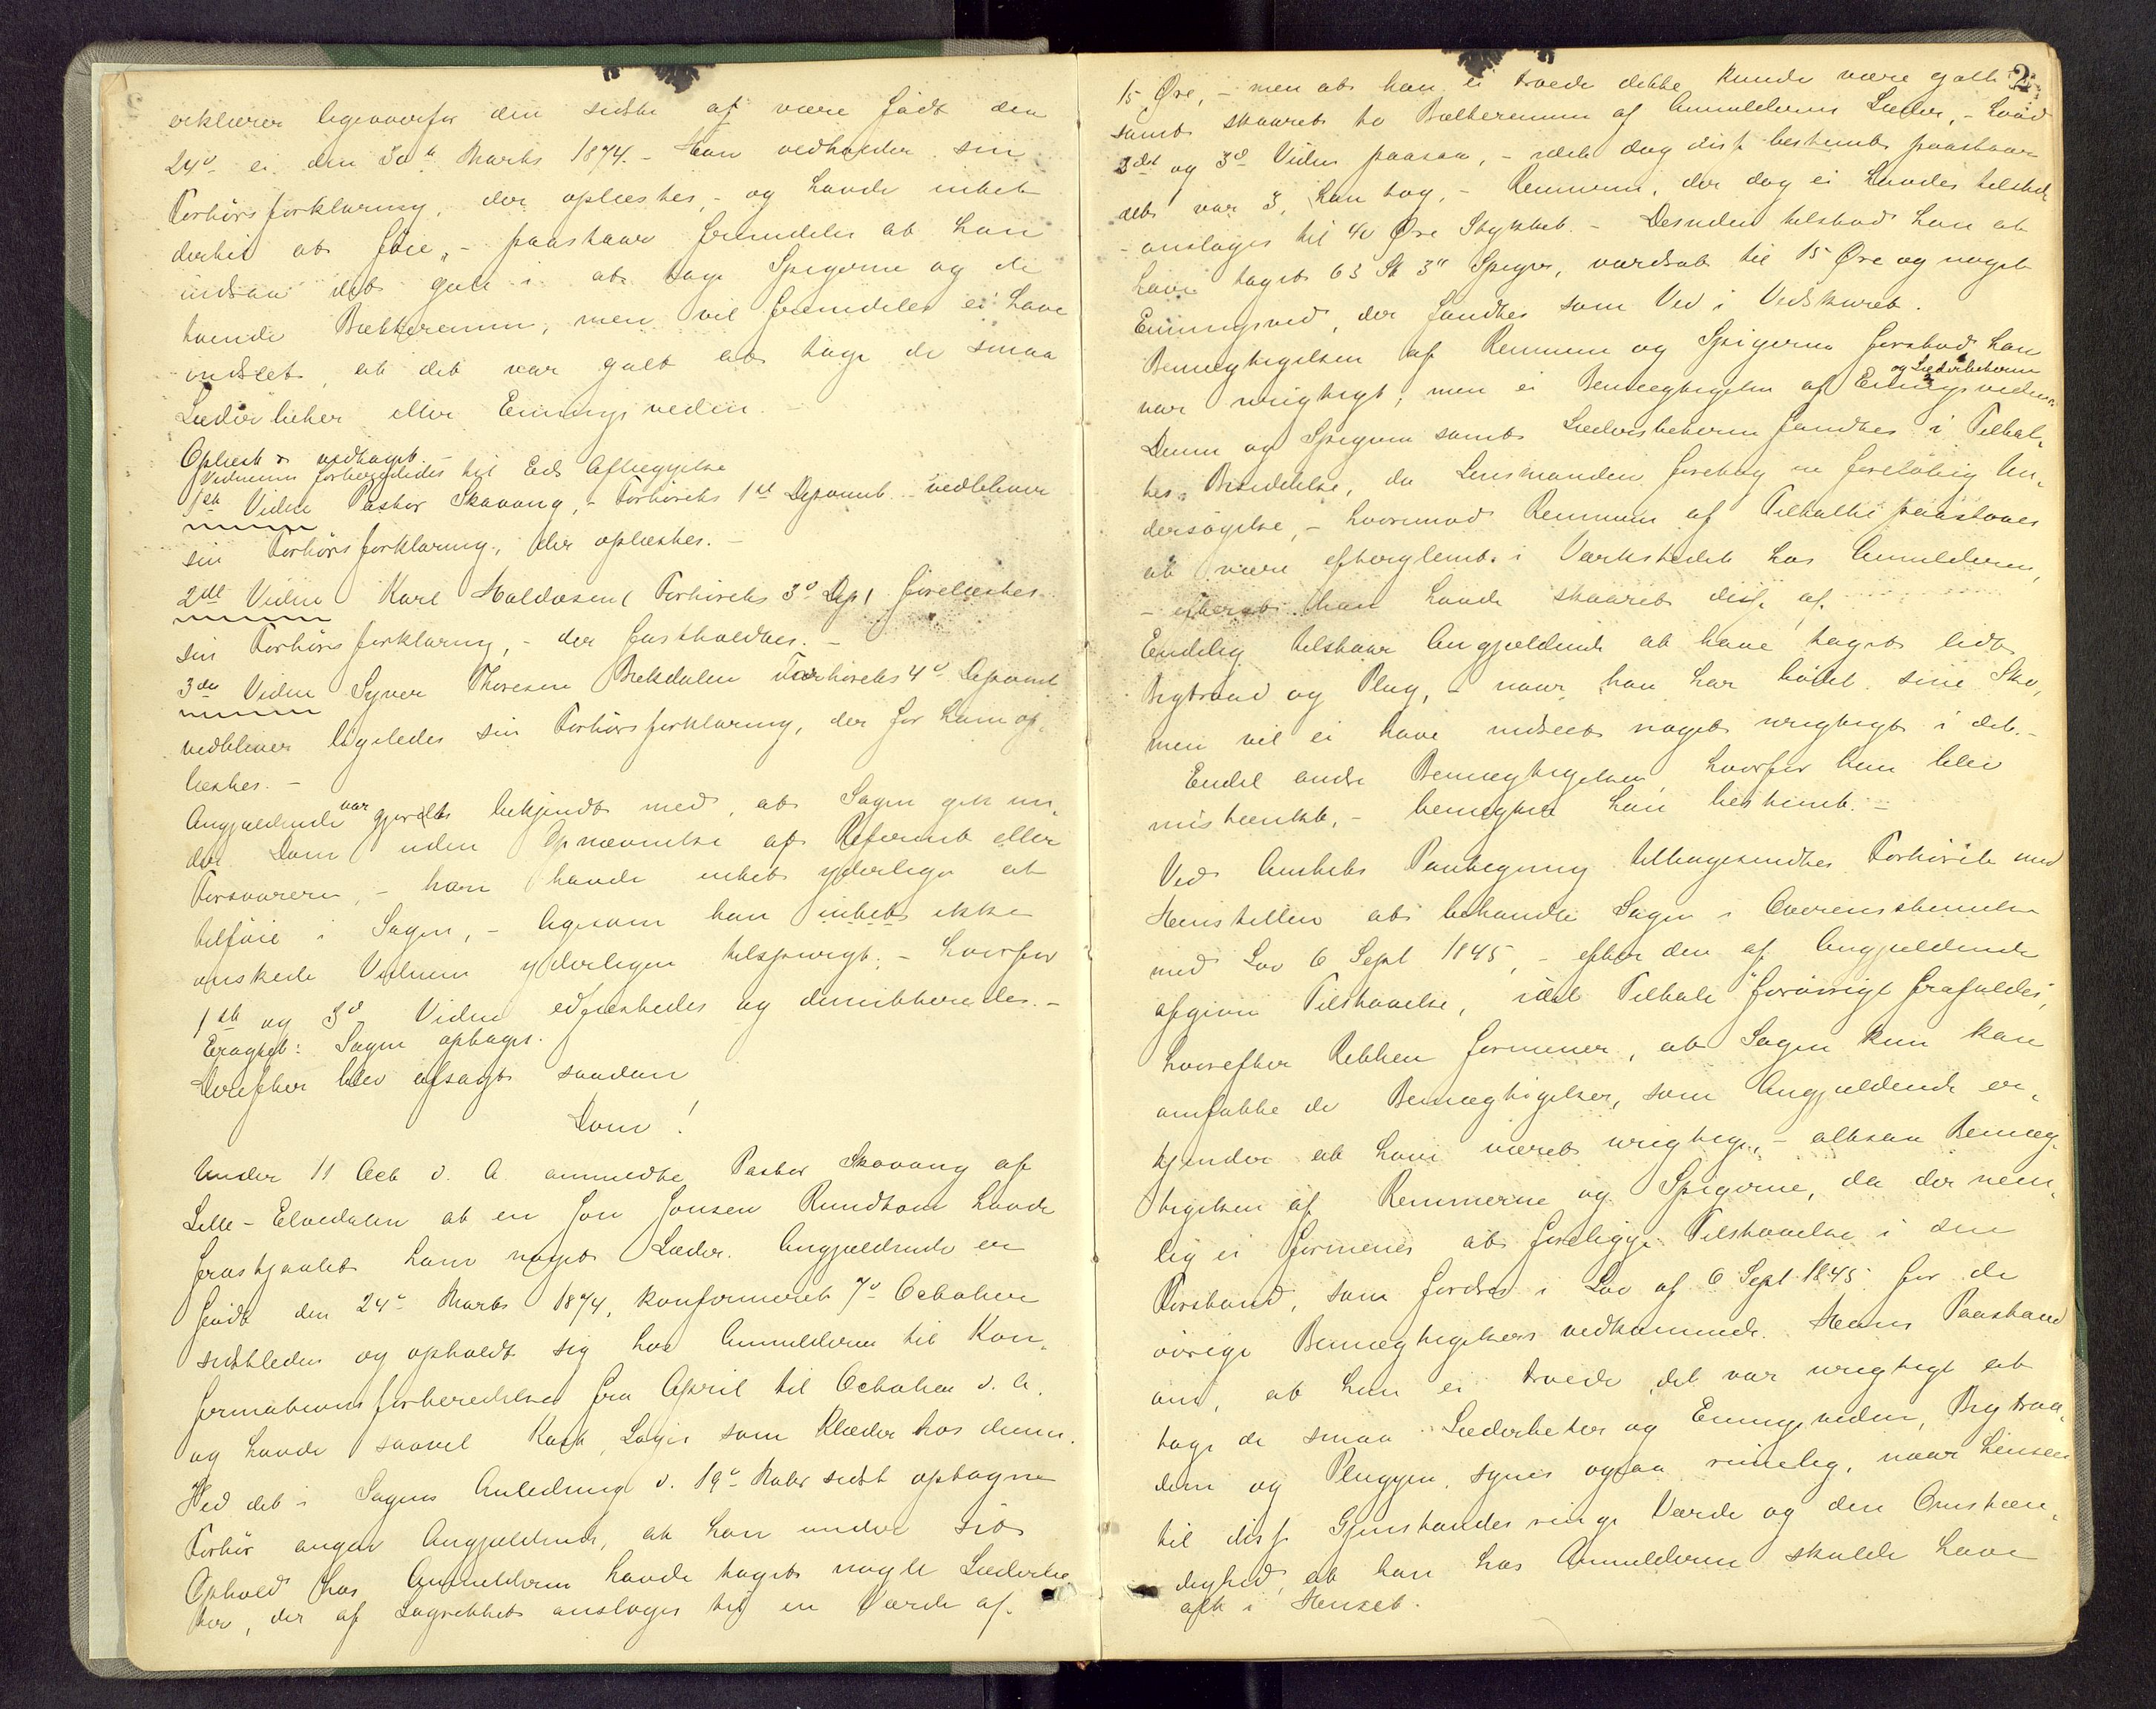 erklærer ligeoverfor den sidste af være født den
24de ei den 30te Marts 1874. - Han vedholder sin
Forhørsforklaring, der oplæstes, - og havde intet
dertil at føie, - paastaar fremdeles at han
indsaa det gale i at tage Spigerne og de
tvende Bælteremme, men vil fremdeles ei have
indseet, at det var galt at tage de smaa
Læderbiter eller Emningsveden. -
Oplæst & vedtaget. -
Vidnerne forberedtes til Eds Aflæggelse
1ste Vidne Pastor Skavang, - Forhørets 1ste Deponent. - vedblever
sin Forhørsforklaring, der oplæstes. -
2det Vidne Karl Haldosen (Forhørets 3die Dep) forelæstes
sin Forhørsforklaring, - der fastholdtes. -
3die Vidne Syver Thoresen Brekdalen Forhørets 4de Deponent
vedblever ligeledes sin Forhørsforklaring, der for ham op-
læstes. -
Angjældende var gjordt bekjendt med, at Sagen gik un-
der Dom uden Opnævnelse af Referent eller
Forsvarere, - han havde intet yderligere at
tilføie i Sagen, - ligesom han intet ikke
ønskede Vidnerne yderligere tilspurgt; - hvorfor
1ste og 3die Vidne edfæstedes og dimitteredes. -
Eragtet: Sagen optages.
Derefter blev afsagt saadan
Dom!
Under 11 Oct d. A. anmeldte Pastor Skavang af
Lille-Elvedalen at en Jon Jonsen Rundtom havde
frastjaalet ham noget Læder. Angjældende er
født den 24de Marts 1874, konfirmeret 7de October
sidstleden og opholdt sig hos Anmelderen til Kon-
firmationsforberedelse fra April til October d. A.
og havde saavel Kost, Logis som Klæder hos denne.
Ved det i Sagens Anledning d. 19de Novbr sidst optagne
Forhør angav Angjældende, at han under sit
Ophold hos Anmelderen havde taget nogle Læderbi-
ter, der af Lagrettet ansloges til en Værdi af
2
15 Øre, - men at han ei troede dette kunde være galt
samt skaaret to Bælteremme af Anmelderens Læder, - hvad
2det og 3die Vidne paasaa, - idet dog disse bestemt paastaar
det var 3, han tog, - Remmene, der dog ei havdes tilstede
- ansloges til 40 Øre Stykket. - Desuden tilstod han at
have taget 63 St 3" Spiger, værdsat til 15 Øre og noget
Emningsved, der fandtes som Ved i Vedskuret.
Bemægtigelsen af Remmene og Spigerne forstod han
var urigtigt, men ei Bemægtigelsen af Emningsveden og Læderbiterne.
Denne og Spigerne samt Læderbiterne fandtes i Tiltal-
tes Besiddelse, da Lensmanden foretog en foreløbig Un-
dersøgelse, - hvorimod Remmene af Tiltalte paastaaes
at være efterglemt i Værkstedet hos Anmelderen,
- efterat han havde skaaret disse af.
Endelig tilstaar Angjældende at have taget lidt
Begtraad og Plug, - naar han har bødet sine Sko,
men vil ei have indseet noget urigtigt i det. -
Endel andre Bemægtigelser hvorfor han blev
mistænkt, - benegter han bestemt. -
Ved Amtets Paategning tilbagesendtes Forhøret med
Henstillen at behandle Sagen i Overensstemmelse
med Lov 6 Sept 1845, - efter den af Angjældende
afgivne Tilstaaelse, idet Tiltale "forøvrigt frafaldes",
hvorefter Retten formener, at Sagen kun kan
omfatte de Bemægtigelser, som Angjældende er-
kjender at have været urigtige, - altsaa Bemæg-
tigelsen af Remmerne og Spigerne, da der nem-
lig ei formenes at foreligge Tilstaaelse i den
Forstand, som fordres i Lov af 6 Sept 1845 for de
øvrige Bemægtigelsers vedkommende. Hans Paastand
om, at han ei troede det var urigtigt at
tage de smaa Læderbiter og Emningsveden, Begtraa-
den og Pluggen, synes ogsaa rimelig, naar Hensees
til disse Gjenstandes ringe Værdi og den Omstæn-
dighed, at han hos Anmelderen skulde have
alt i Henseet.